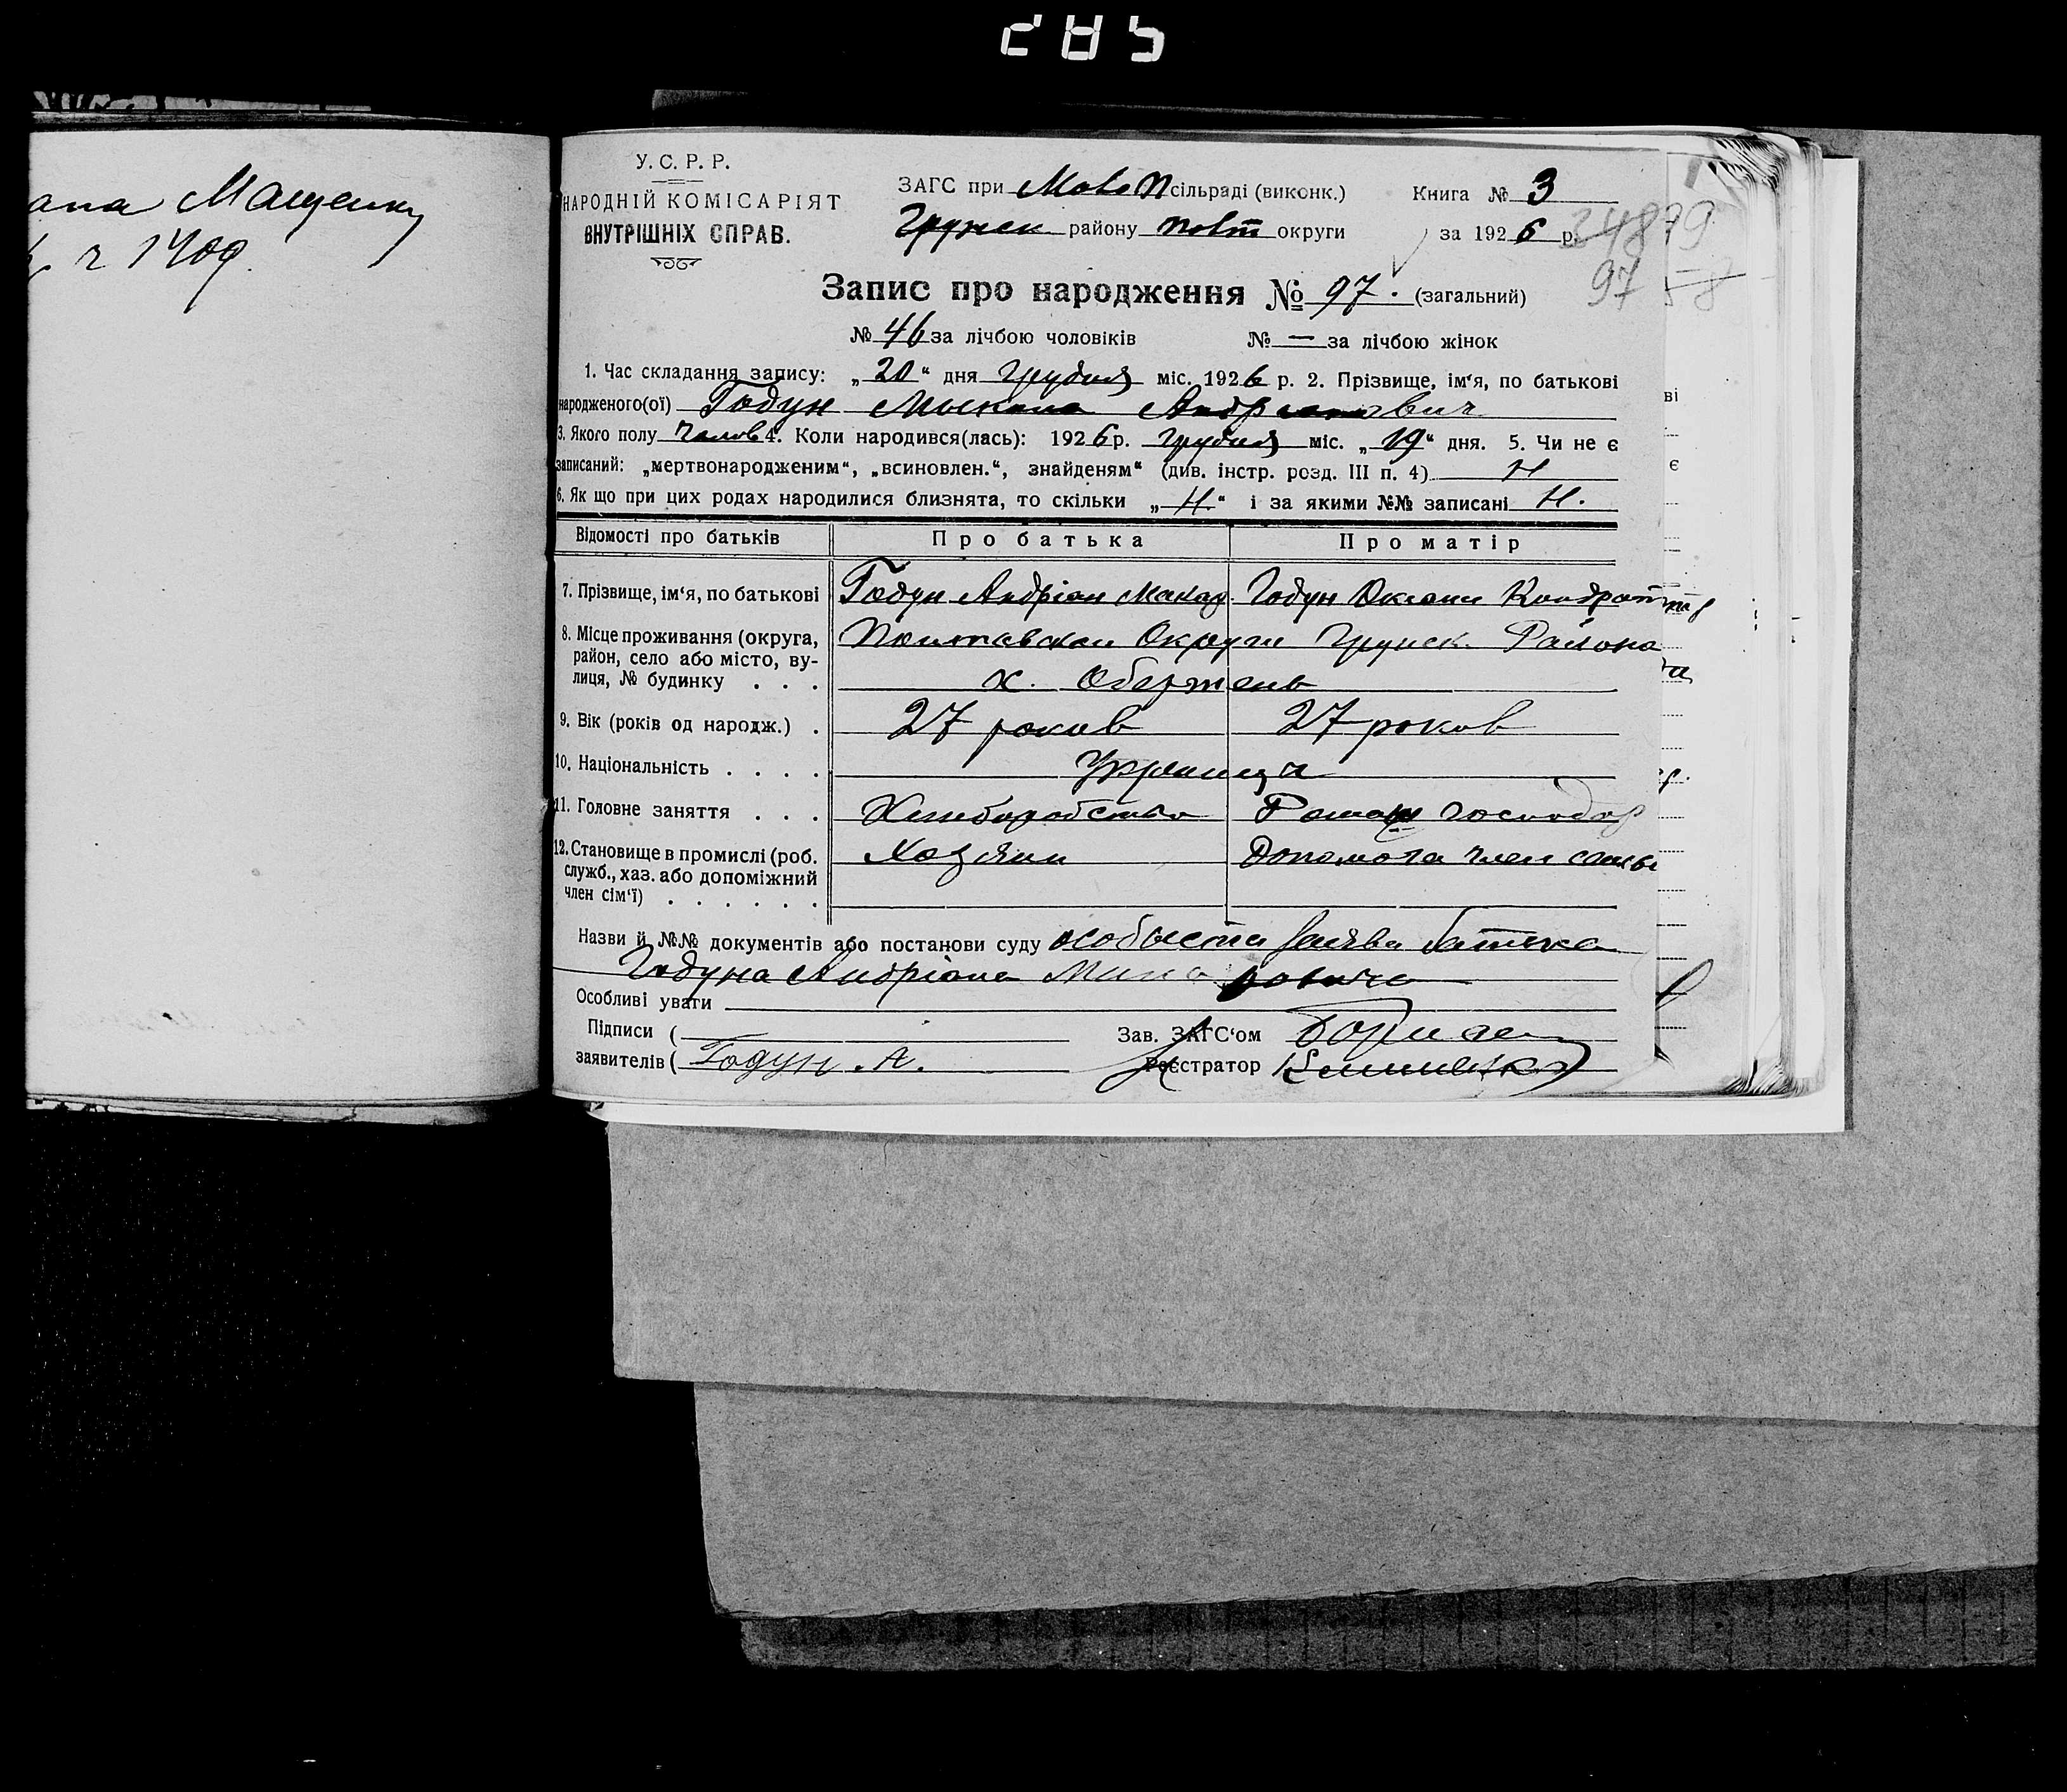 285
ана Мащенку
У. С. Р. Р.
НАРОДНІЙ КОМІСАРІЯТ
ВНУТРІШНІХ СПРАВ.
ЗАГС при сільраді (виконк.)
Грунск району Полт округи
Книга № 3
за 1926 р.
97
Запис про народження № 97. (загальний)
№ 46 за лічбою чоловіків № — за лічбою жінок
1. Час складання запису: „20“ дня Грудня міс. 1926 р. 2. Прізвище, ім‘я, по батькові
народженого(ої) Годун Микола Андрианович
3. Якого полу Чолов 4. Коли народився(лась): 1926 р. Грудня міс. „19“ дня. 5. Чи не є
записаний: „мертвонародженим“, „всиновлен.“, знайденям“ (див. інстр. розд. III п. 4) Н
6. Як що при цих родах народилися близнята, то скільки „Н.“ і за якими №№ записані Н.
Відомості про батьків Про батька Про матір
7. Прізвище, ім‘я, по батькові Годун Андріан Макар. Годун Оксани Кондрат
8. Місце проживання (округа, район, село або місто, вулиця, № будинку . . . Полтавскои Округи Грунск. Района
х.
9. Вік (років од народж.) . 27 роков 27 роков
10. Національність . . . . Украинца
11. Головне заняття . . . Хлиборобство господар
12. Становище в промислі (роб. служб., хаз. або допоміжний член сім‘ї) . . . . . . Хозяин Допомога член семьи
Назви й №№ документів або постанови суду особыста заява батька
Годуна Андріана Макаровича
Особливі уваги
Підписи ( Зав. ЗАГС‘ом
заявителів ( Годун. А. Реєстратор